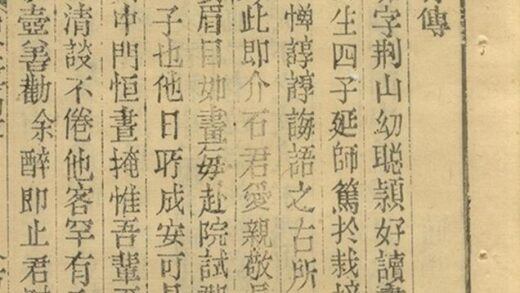 傳
字荆山幼聰頴好讀書
生四子延師篤扵栽培
憚諄諄誨語之古所
此即介石君愛親敬長
眉目如畫每赴院試
子也他日所成安可量
中門恒晝掩惟吾輩至
清談不倦他客罕有
壺畧勸余醉即止君